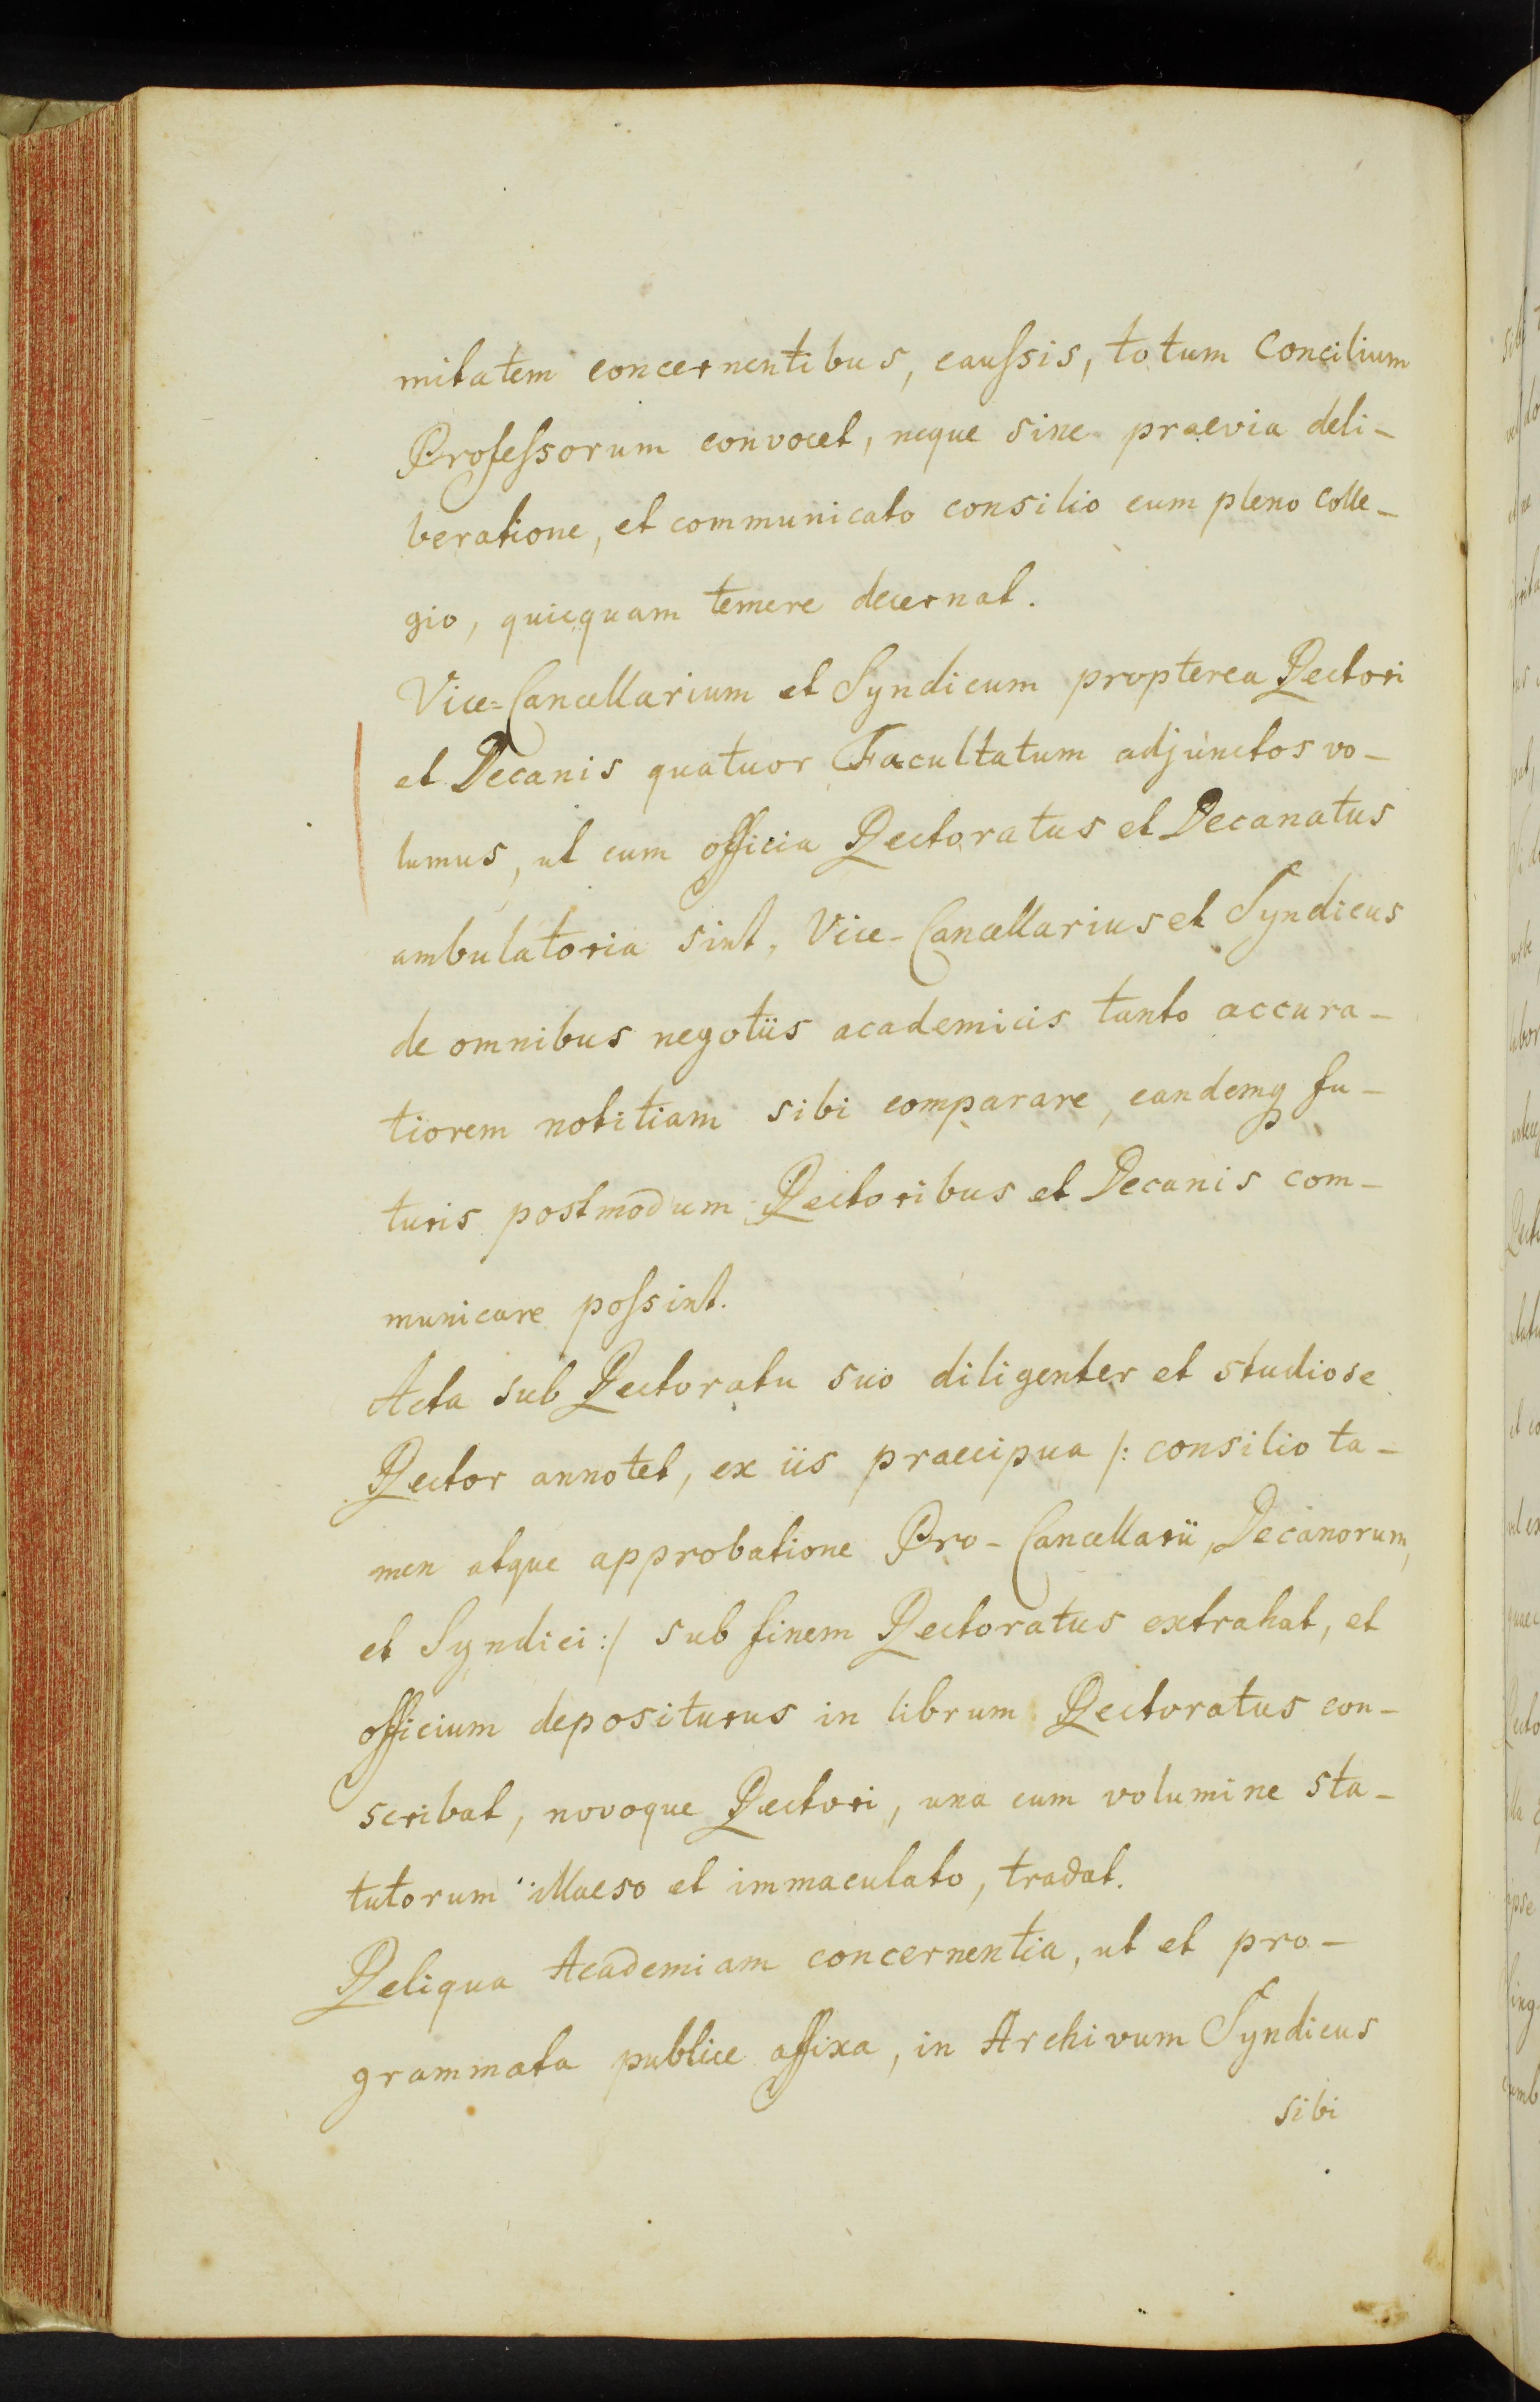 mitatem concernentibus, caussis, totum Concilium
Professorum convocet, neque sine praevia deli-
beratione, et communicato consilio cum pleno Colle-
gio, quicquam temere decernat.
Vice=Cancellarium et Syndicum propterea Rectori
et Decanis quatuor Facultatum adjunctos vo-
lumus, ut cum officia Rectoratus et Decanatus
ambulatoria sint, Vice-Cancellarius et Syndicus
de omnibus negotiis academicis tanto accura-
tiorem notitiam sibi comparare, eandemq fu-
turis postmodum Rectoribus et Decanis com-
municare possint.
Acta sub Rectoratu suo diligenter et studiose
Rector annotet, ex iis praecipua /: consilio ta-
men atque approbatione Pro-Cancellarii, Decanorum,
et Syndici :/ sub finem Rectoratus extrahat, et
officium depositurus in librum Rectoratus con-
scribat, novoque Rectori, una cum volumine sta-
tutorum illaeso et immaculato, tradat.
Reliqua Academiam concernentia, ut et pro-
grammata publice affixa, in Archivum Syndicus
sibi